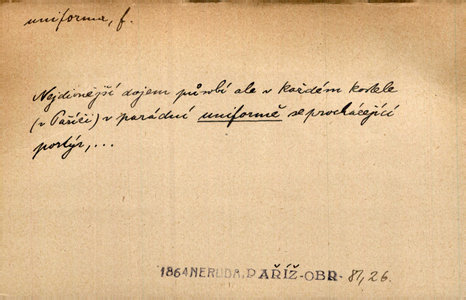 uniforma, f.
Nejdivnější dojem působí ale v každém kostele
(v Paříži) v parádní uniformě se procházející
portýr, ...
1864 NERUDA, PAŘÍŽ-OBR- 81, 26.